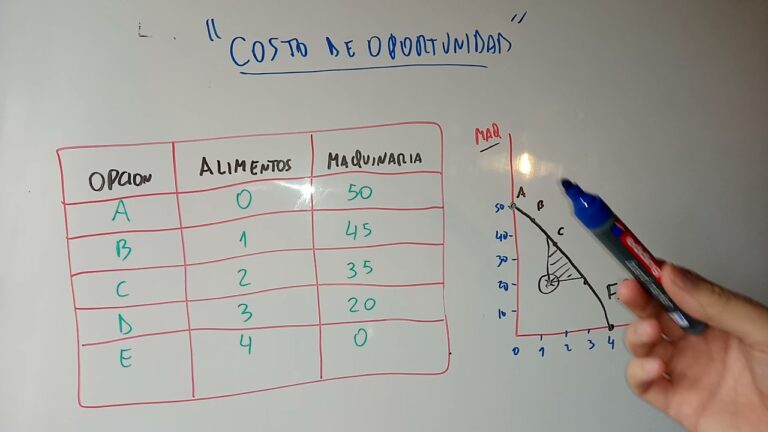 "COSTO DE OPORTUNIDAD"
OPCION ALIMENTOS MAQUINARIA
A 0 50
B 1 45
C 2 35
D 3 20
E 4 0
MAQ
A
B
50
C
40
30
20
F
10
0 1 2 3 4